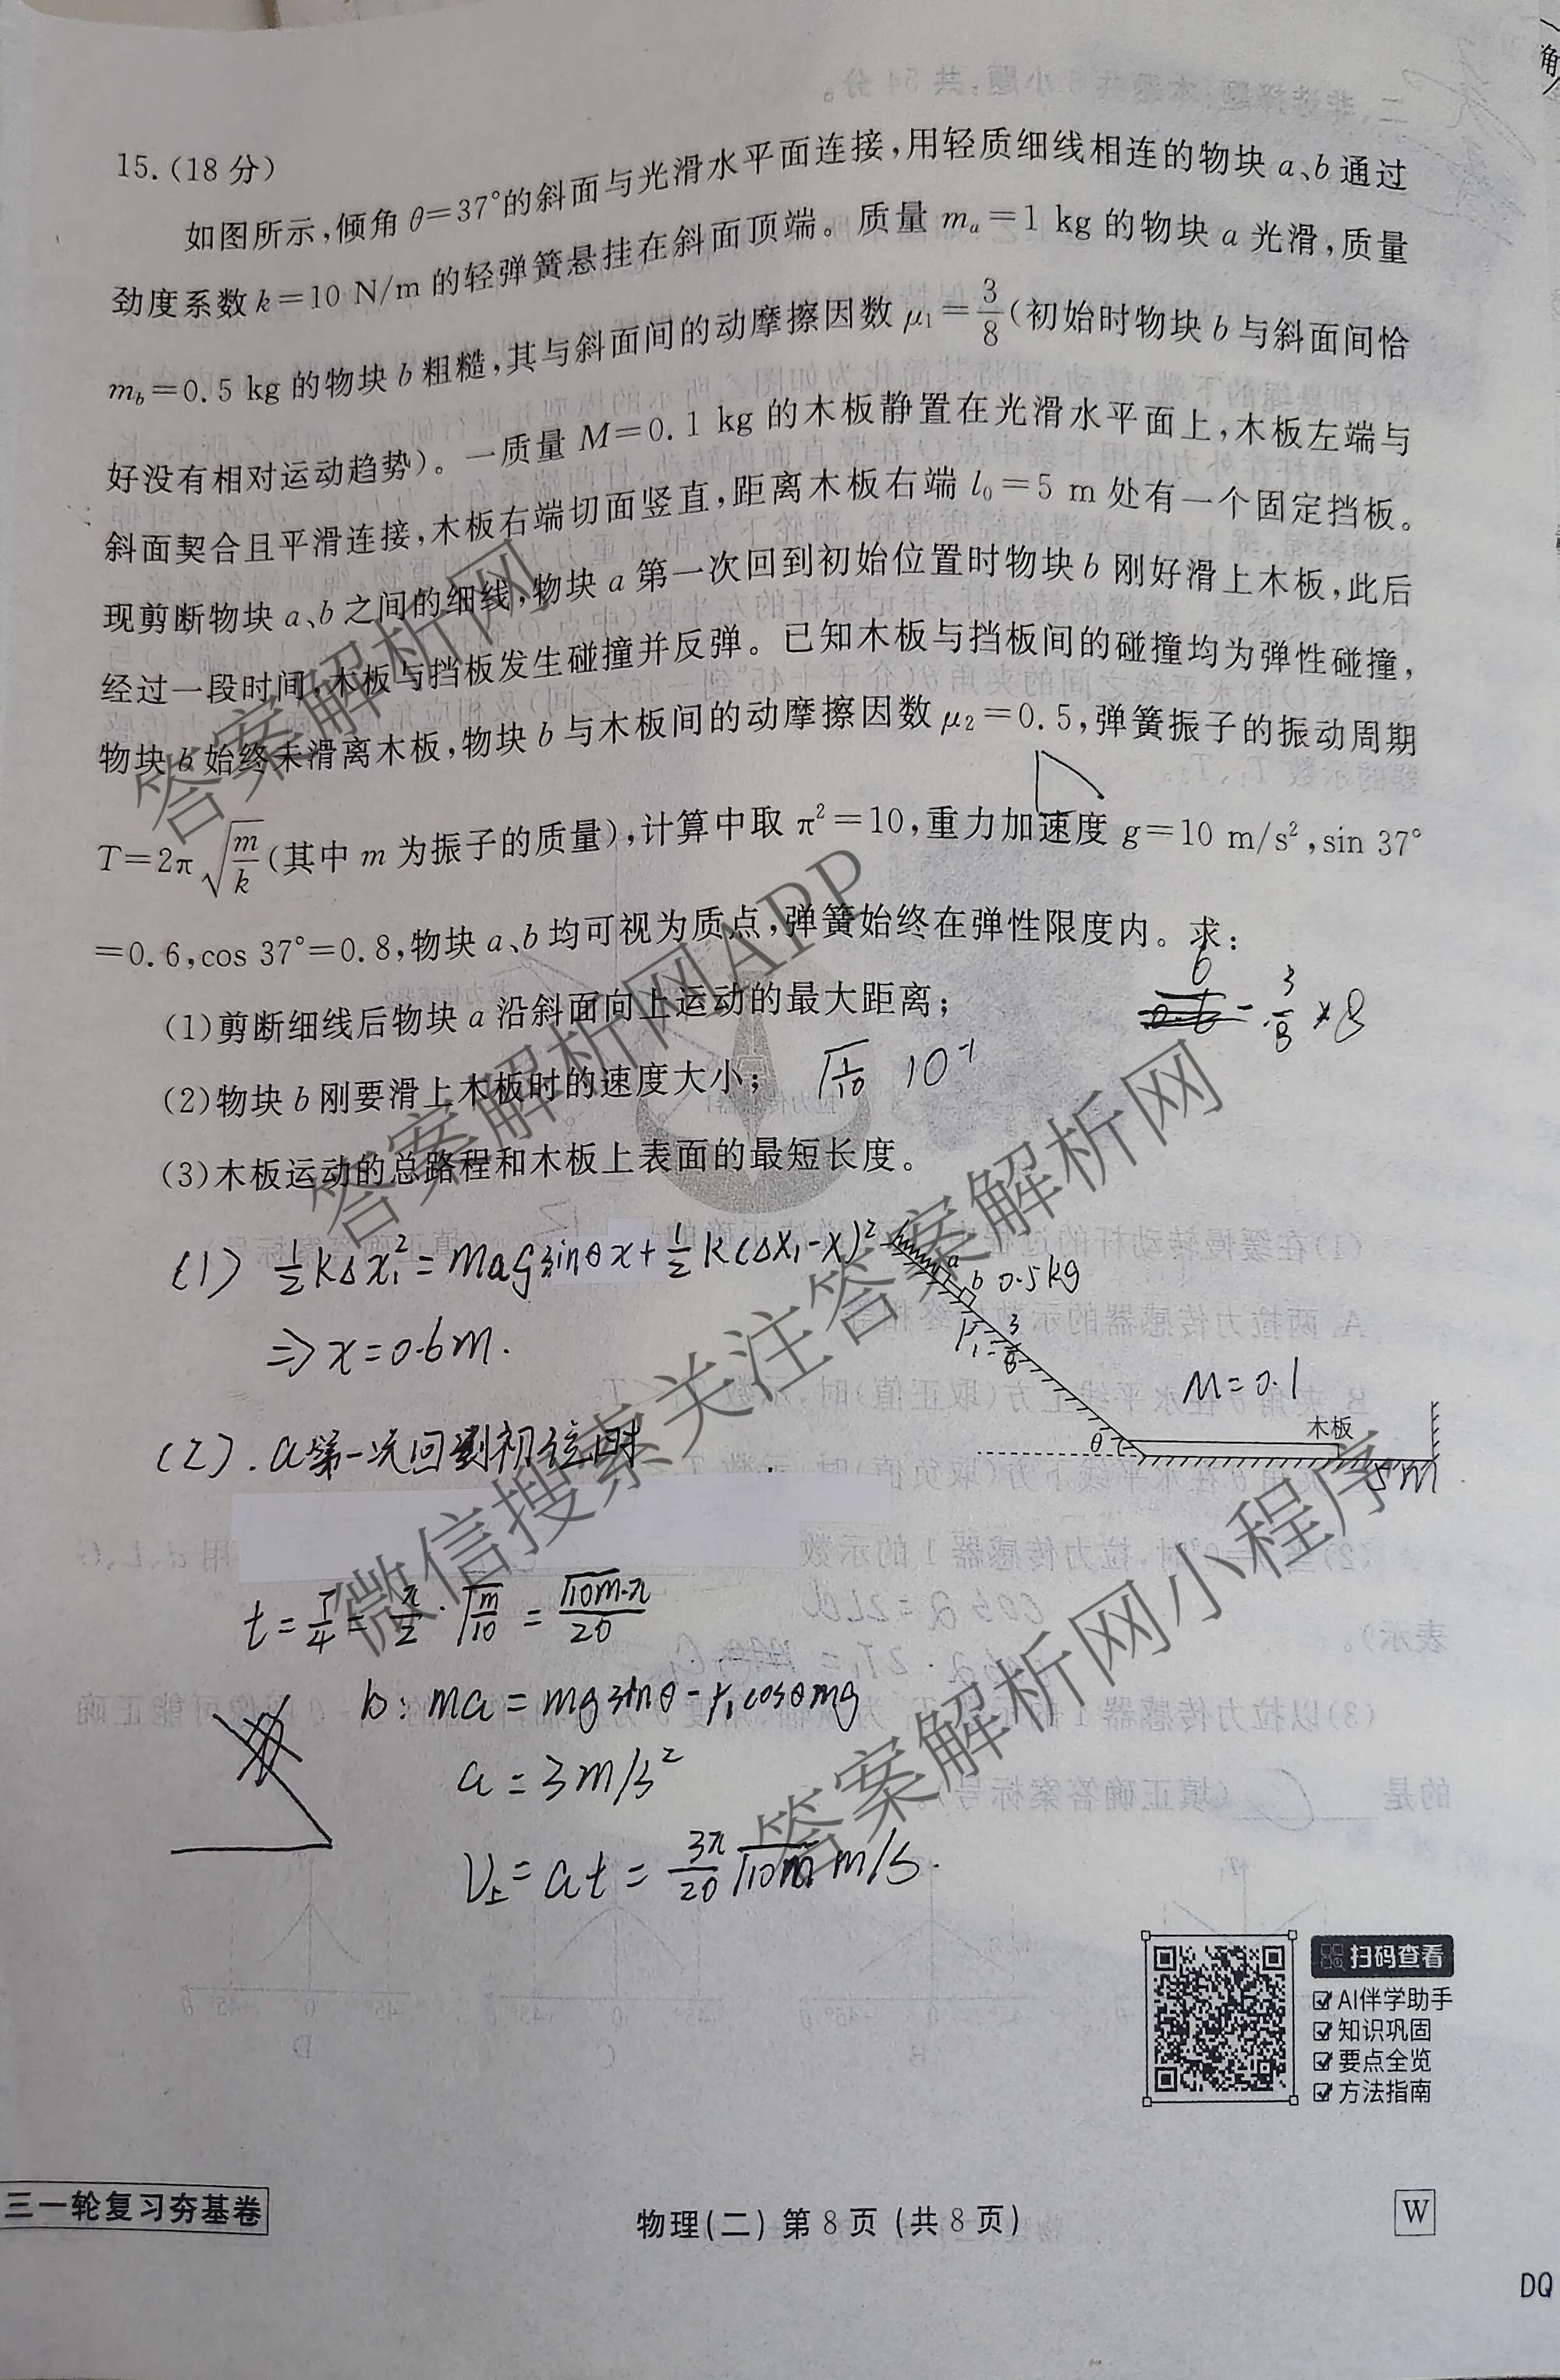 15.(18分)
如图所示,倾角θ=37°的斜面与光滑水平面连接,用轻质细线相连的物块a、b通过
劲度系数k=10 N/m的轻弹簧悬挂在斜面顶端。质量mₐ=1 kg的物块a光滑,质量
m_b=0.5 kg的物块b粗糙,其与斜面间的动摩擦因数μ₁=3/8(初始时物块b与斜面间恰
好没有相对运动趋势)。一质量M=0.1 kg的木板静置在光滑水平面上,木板左端与
斜面契合且平滑连接,木板右端切面竖直,距离木板右端l₀=5 m处有一个固定挡板。
现剪断物块a、b之间的细线,物块a第一次回到初始位置时物块b刚好滑上木板,此后
经过一段时间,木板与挡板发生碰撞并反弹。已知木板与挡板间的碰撞均为弹性碰撞,
物块b始终未滑离木板,物块b与木板间的动摩擦因数μ₂=0.5,弹簧振子的振动周期
T=2π√(m/k)(其中m为振子的质量),计算中取π²=10,重力加速度g=10 m/s²,sin 37°
=0.6,cos 37°=0.8,物块a、b均可视为质点,弹簧始终在弹性限度内。求:
(1)剪断细线后物块a沿斜面向上运动的最大距离;
6
3/8 × 8
(2)物块b刚要滑上木板时的速度大小;
√(1/10) 10⁻¹
(3)木板运动的总路程和木板上表面的最短长度。
(1) ½kΔx₁²=mₐgsinθx+½k(Δx₁-x)²
⇒x=0.6m.
a
b 0.5kg
μ₁=3/8
M=0.1
木板
θ
5m
(2).a第一次回到初位时
t=T/4=π/2·√(m/10)=√10m·π/20
b: ma=mgsinθ-μ₁cosθmg
a=3m/s²
V上=at=3π/20 √10m m/s.
扫码查看
AI伴学助手
知识巩固
要点全览
方法指南
三一轮复习夯基卷
物理(二) 第8页(共8页)
W
DQ
答案解析网
答案解析网APP
微信搜索关注答案解析网
答案解析网小程序